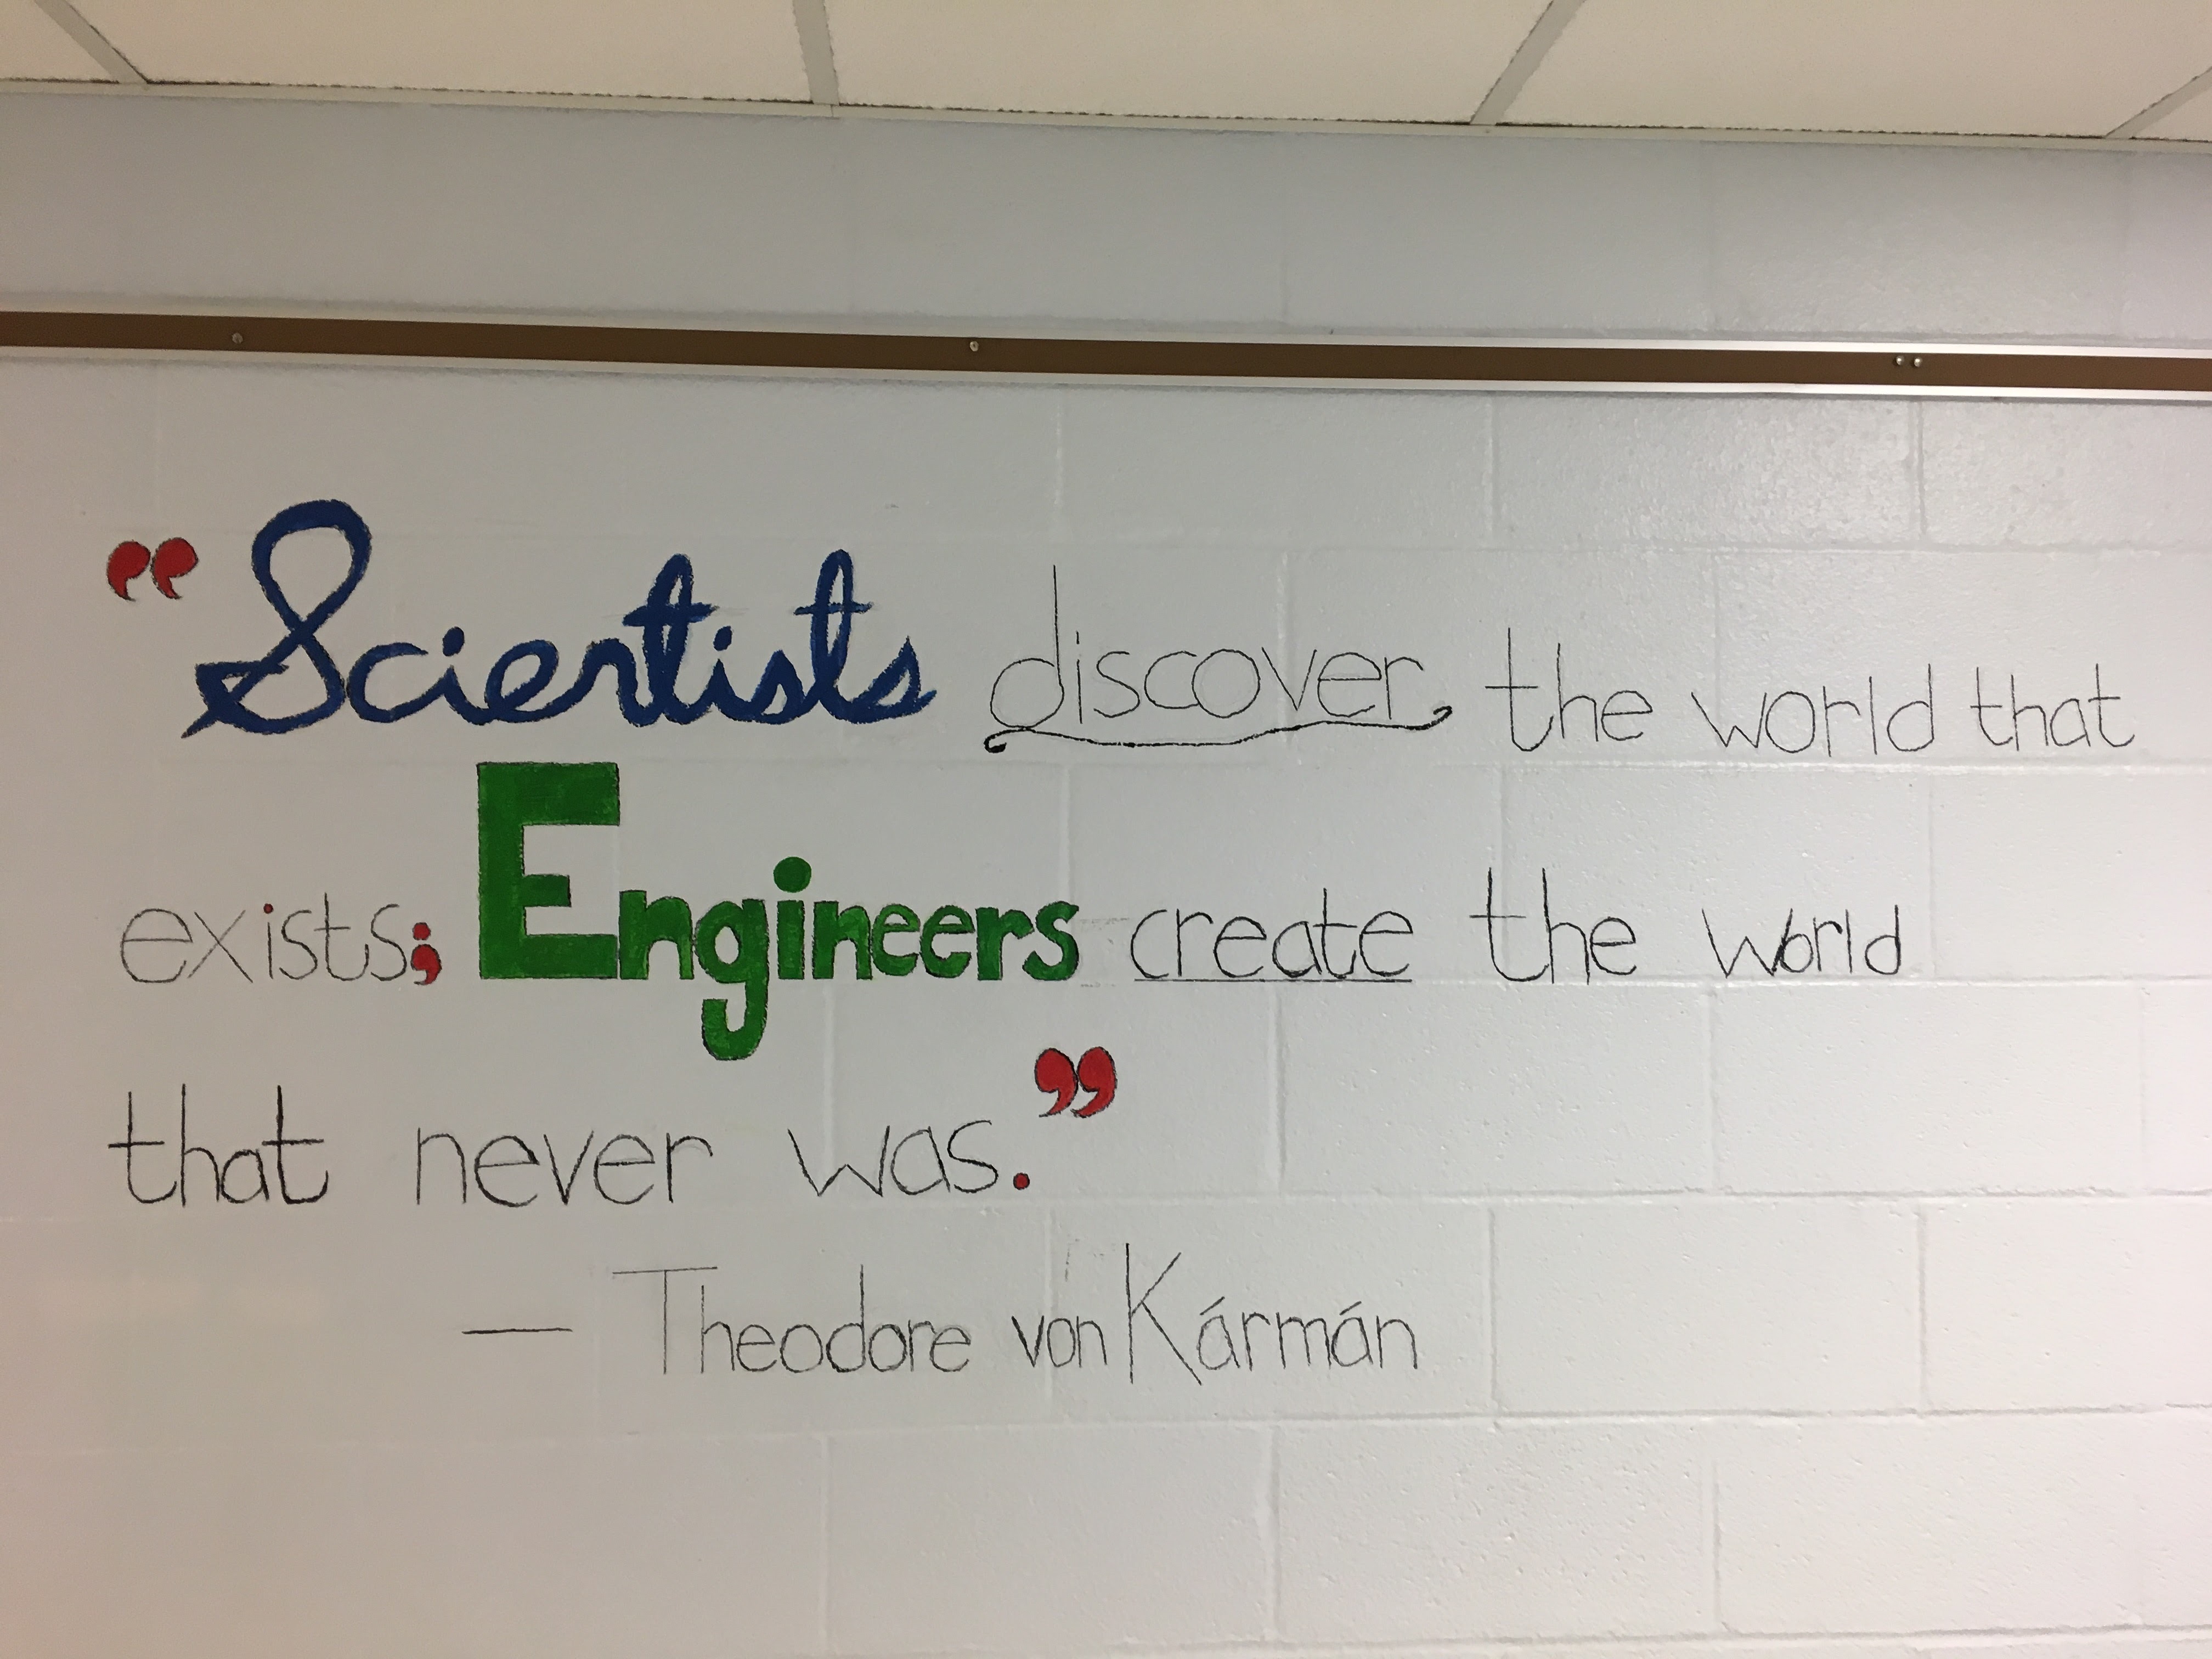 “Scientists discover the world that
exists; Engineers create the world
that never was.”
— Theodore von Kármán